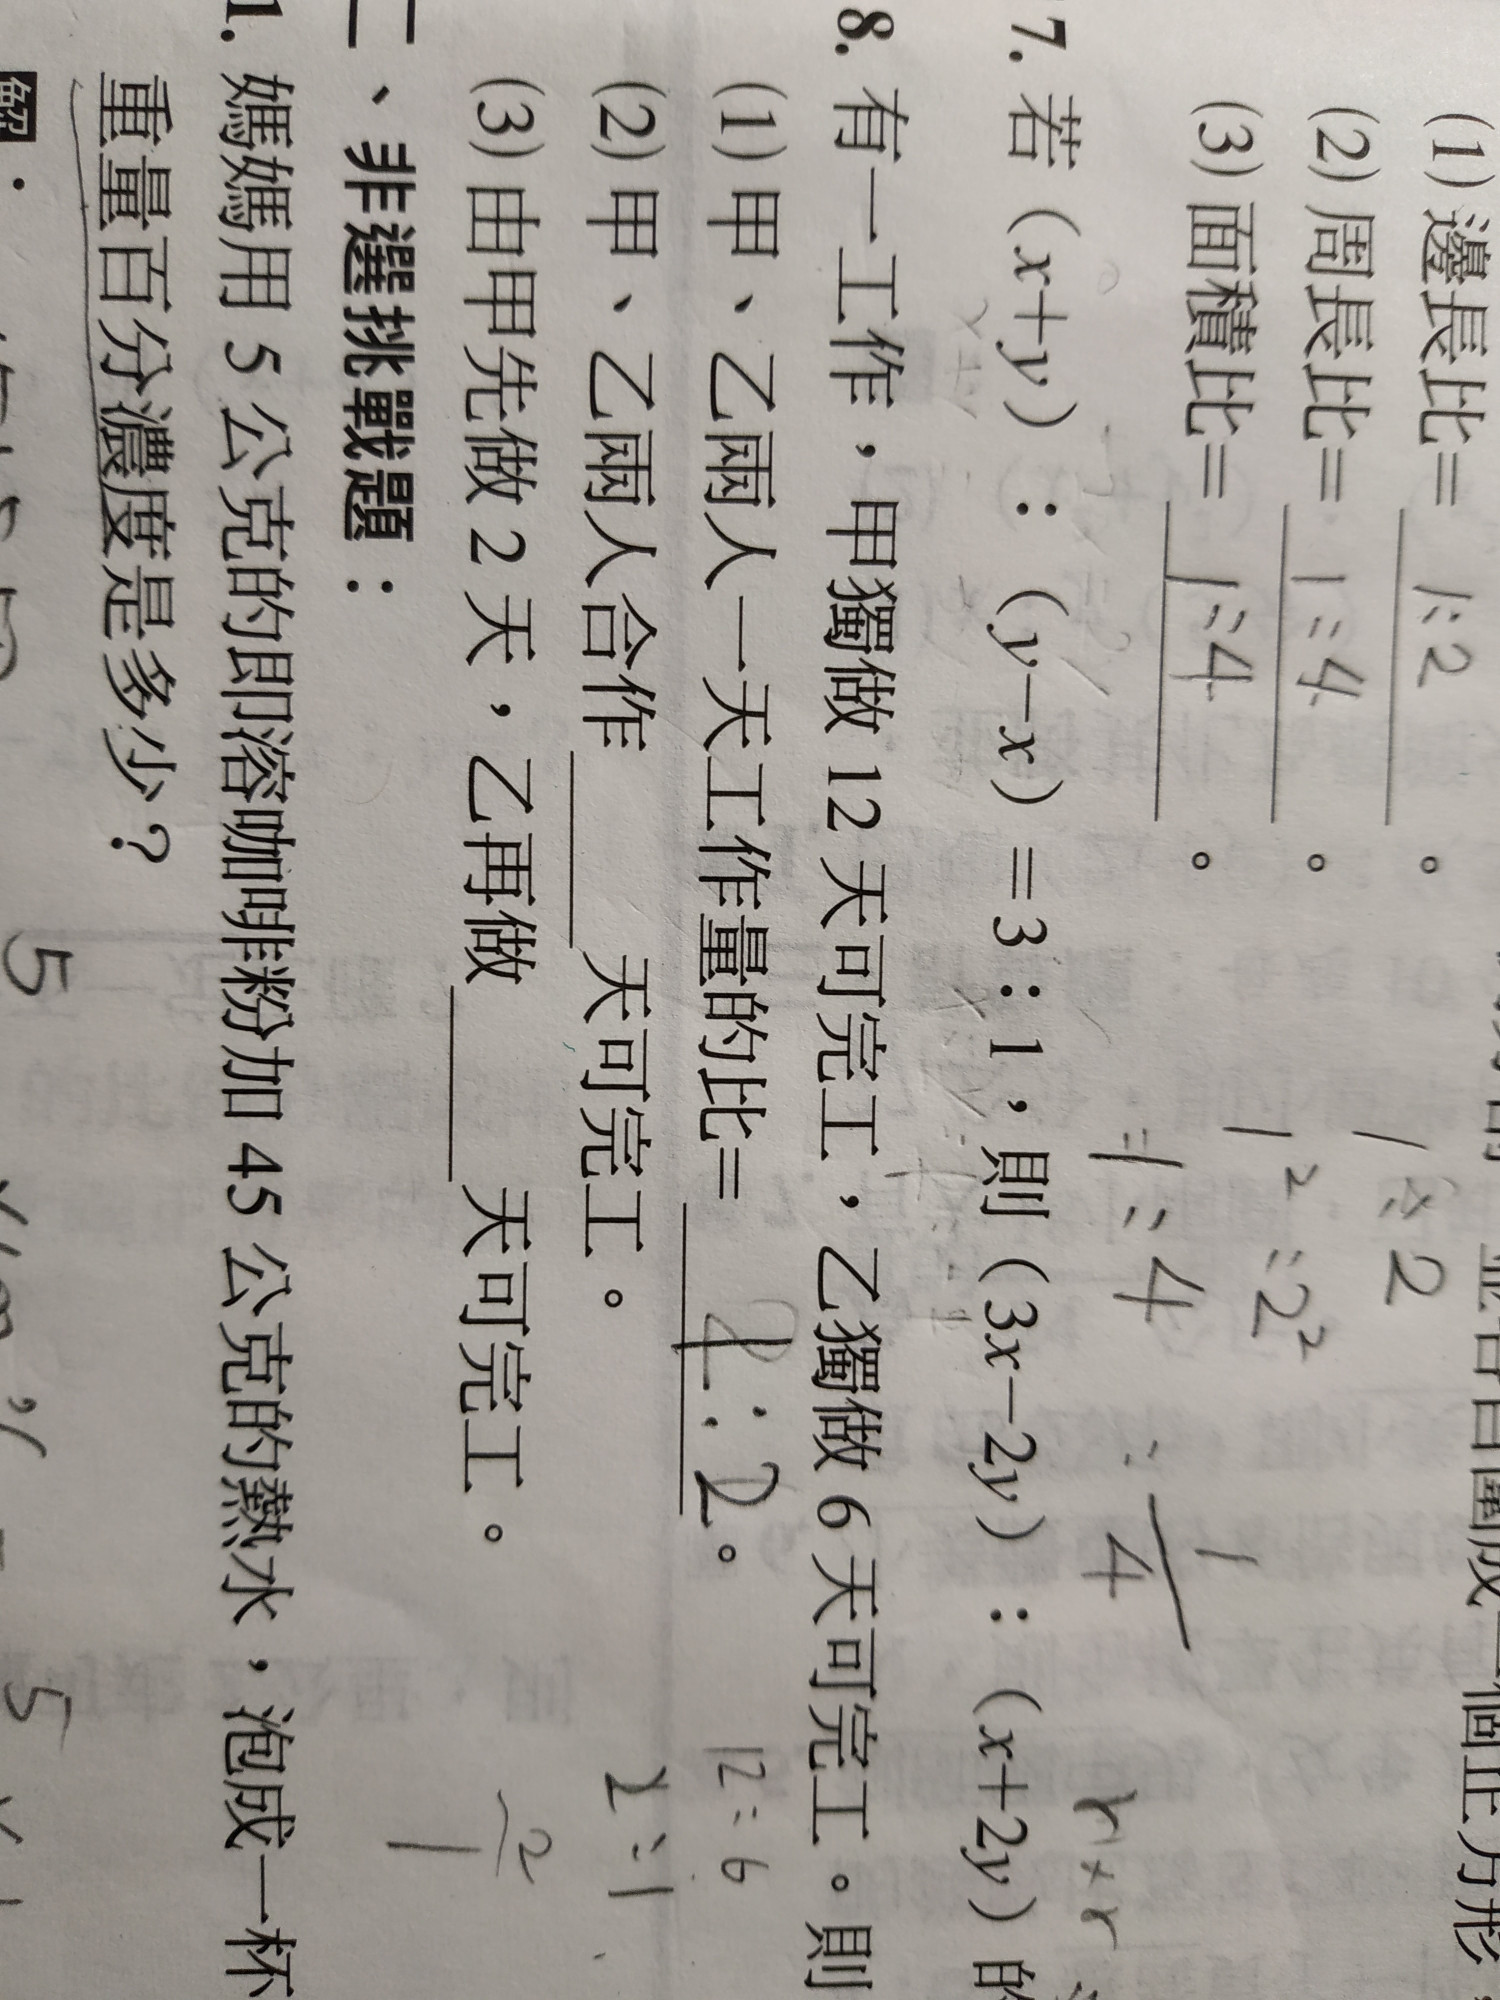 (1) 邊長比= 1:2 。
(2) 周長比= 1:4 。 1 2
(3) 面積比= 1:4 。 1² : 2²
= 1:4 : 1/4
7. 若(x+y):(y−x)=3:1,則(3x−2y):(x+2y)的
8. 有一工作,甲獨做 12 天可完工,乙獨做 6 天可完工。則
(1) 甲、乙兩人一天工作量的比= 1:2。 12:6
(2) 甲、乙兩人合作____天可完工。 2:1
(3) 由甲先做 2 天,乙再做____天可完工。 2/1
二、非選挑戰題:
1. 媽媽用 5 公克的即溶咖啡粉加 45 公克的熱水,泡成一杯
重量百分濃度是多少?
解: 5 5